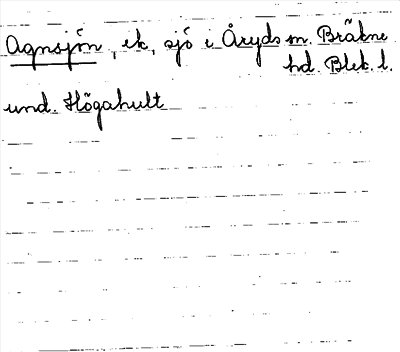 Agnsjön, ek, sjö i Åryds sn. Bräkne
hd. Blek. l.
und. Högahult